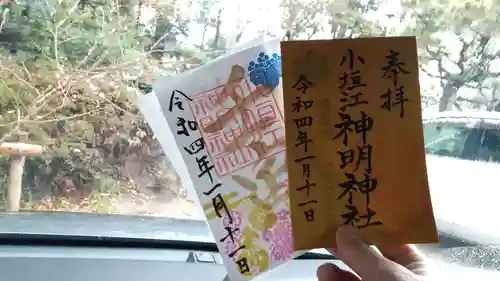 奉拝
小垣江神明神社
令和四年一月十一日
令和四年一月十一日